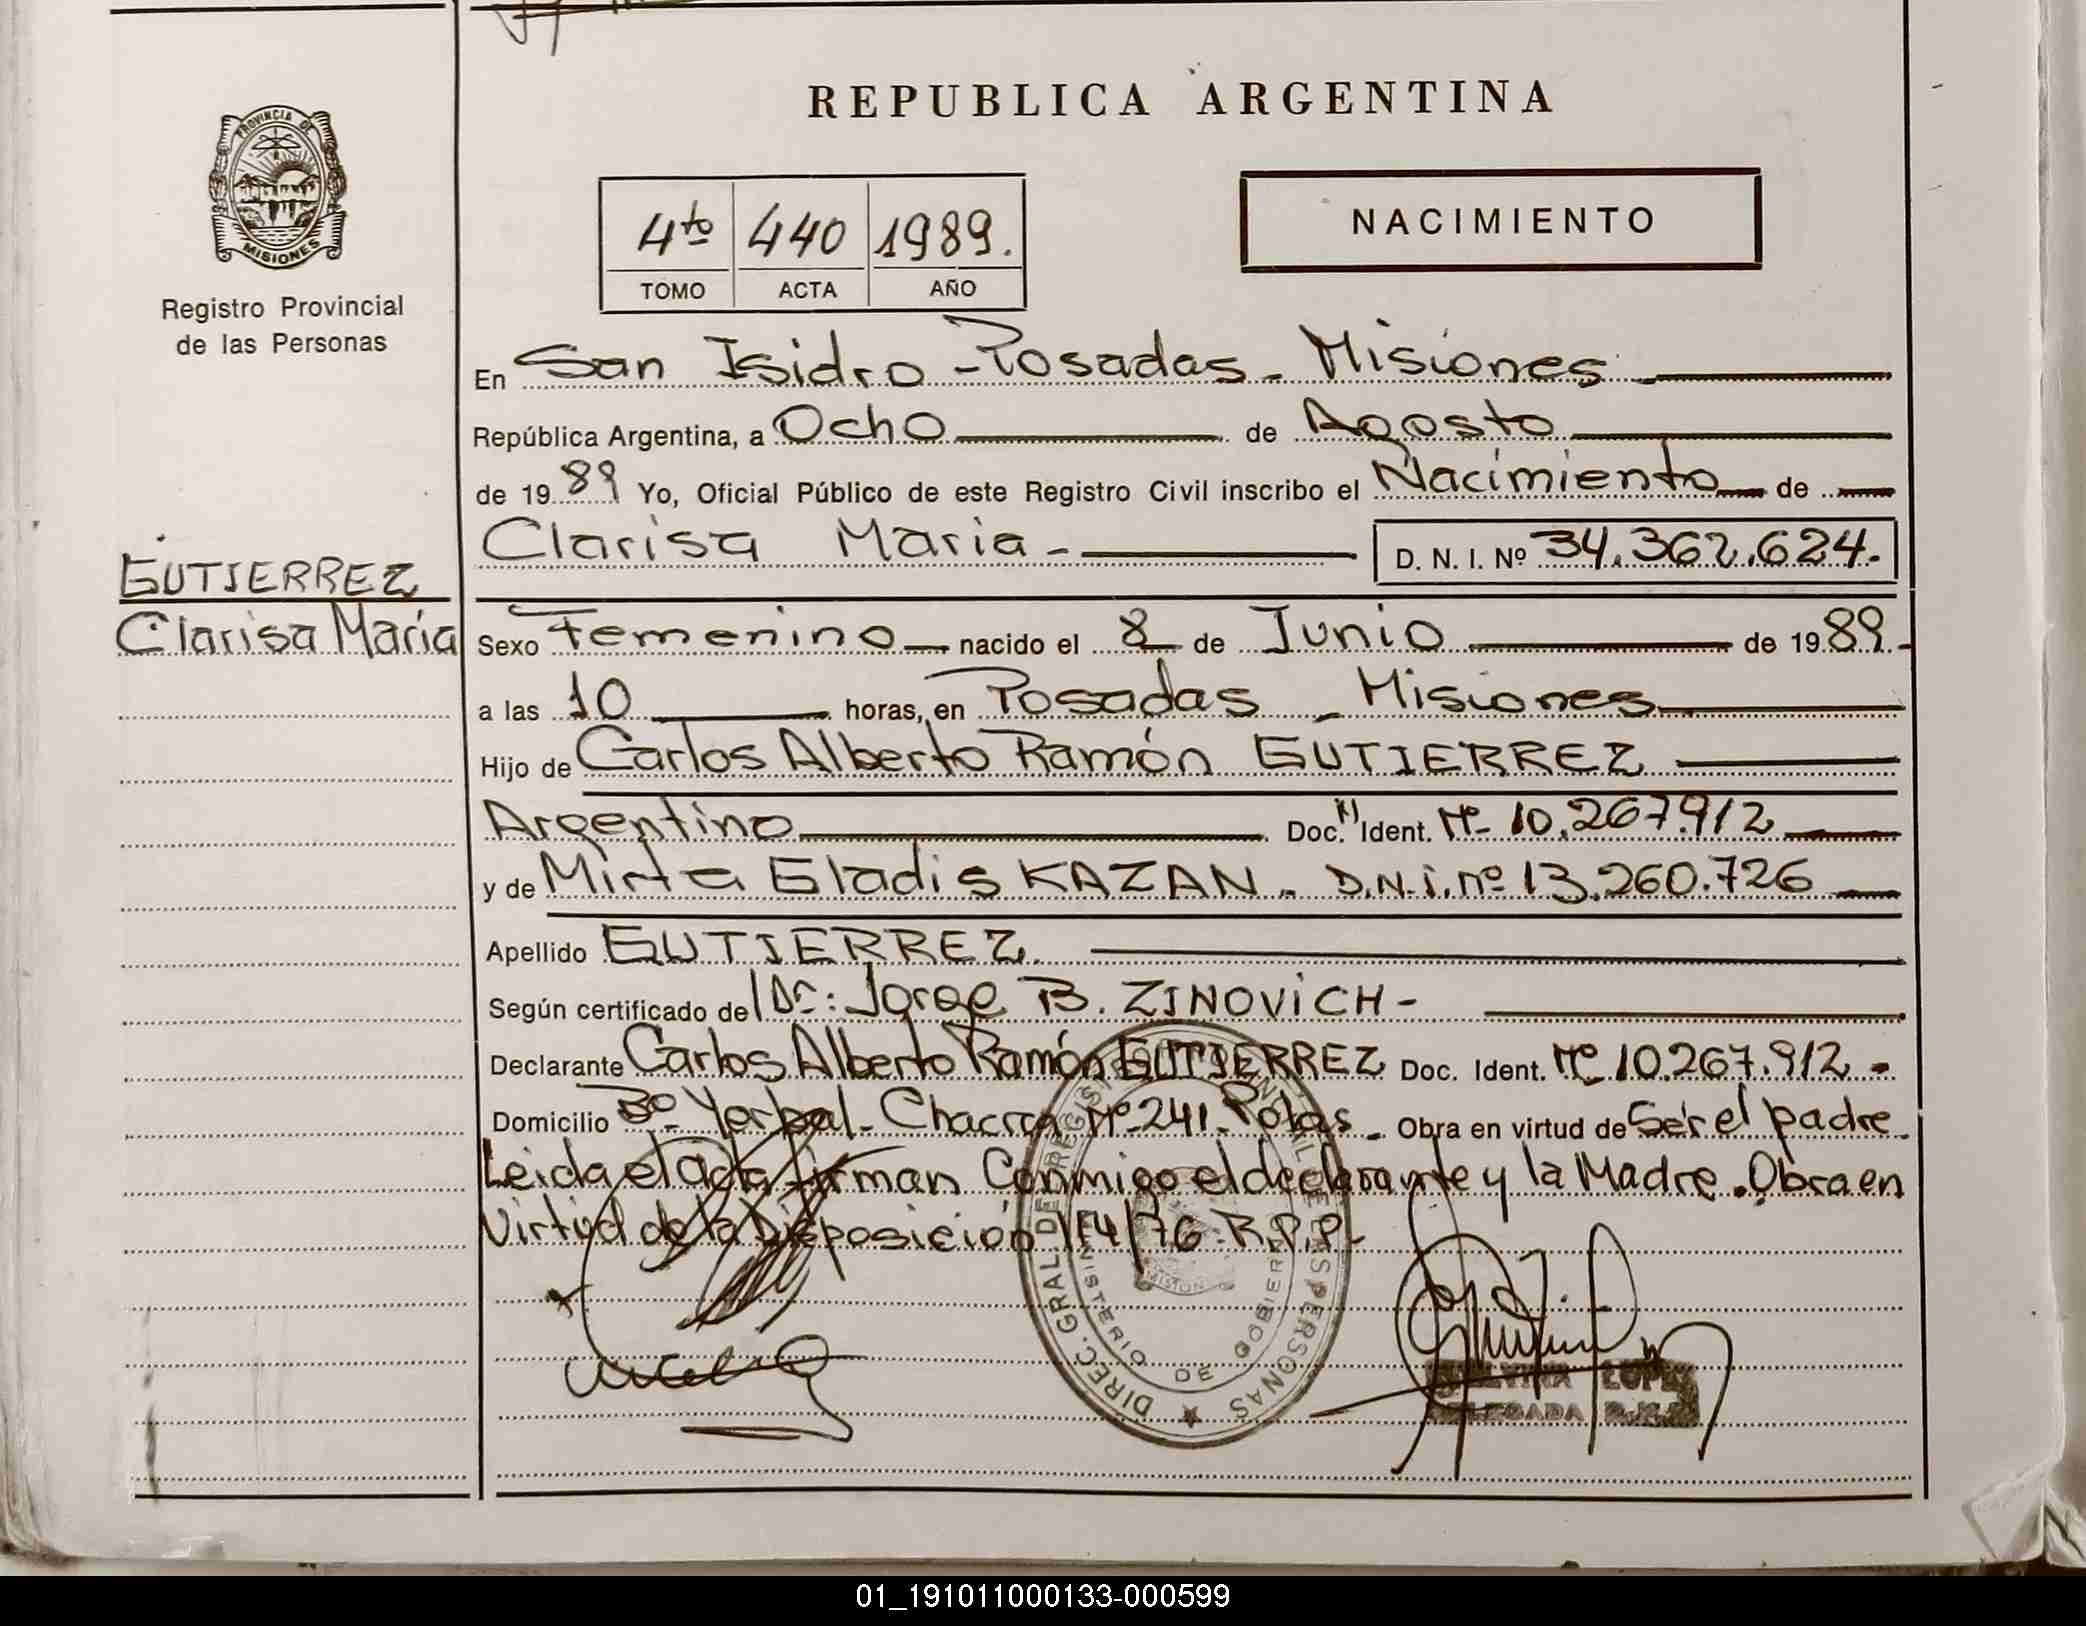 REPUBLICA ARGENTINA
PROVINCIA DE
MISIONES
Registro Provincial
de las Personas
4to 440 1989.
TOMO ACTA AÑO
NACIMIENTO
En San Isidro - Posadas - Misiones
República Argentina, a Ocho de Agosto
de 1989 Yo, Oficial Público de este Registro Civil inscribo el Nacimiento de
Clarisa Maria - D. N. I. Nº 34.362.624.
GUTIERREZ
Clarisa Maria
Sexo Femenino nacido el 8 de Junio de 1989.
a las 10 horas, en Posadas - Misiones
Hijo de Carlos Alberto Ramón GUTIERREZ
Argentino Doc. Ident. Nº 10.267.912
y de Mirta Gladis KAZAN - D.N.i.nº 13.260.726
Apellido GUTIERREZ
Según certificado del Dr: Jorge B. ZINOVICH -
Declarante Carlos Alberto Ramón GUTIERREZ Doc. Ident. Nº 10.267.912 -
Domicilio Bº Yerbal - Chacra Nº 241 - Pdas - Obra en virtud de Ser el padre.
Leida el acta firman Conmigo el declarante y la Madre. Obra en
Virtud de la Disposición 114/76 R.P.P.
DIREC. GRAL. DE REGISTRO PERSONAS
MINISTERIO DE GOBIERNO
LOPEZ
01_191011000133-000599